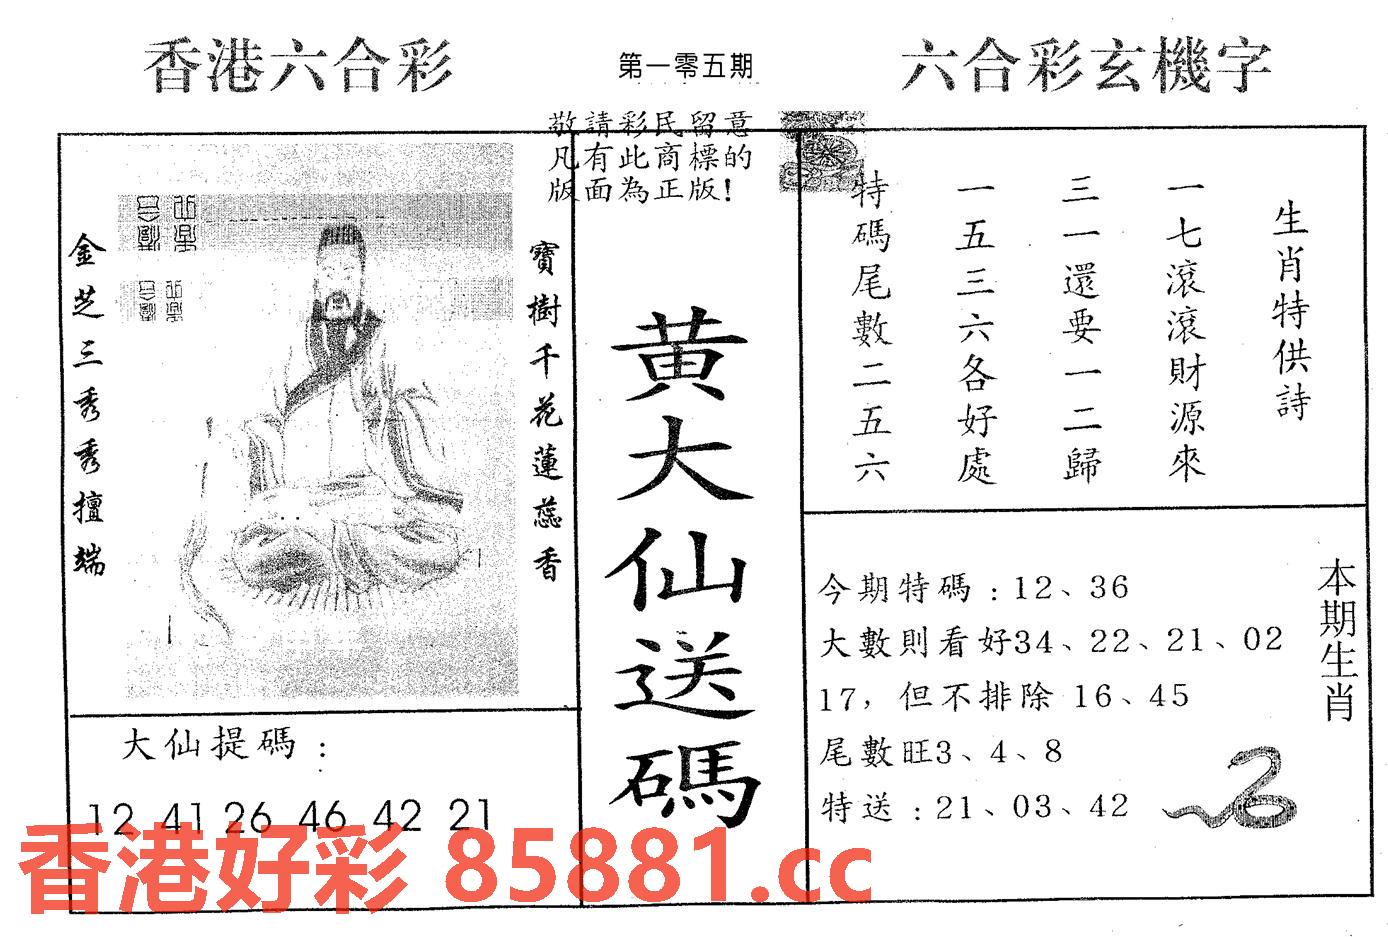 香港六合彩
第一零五期
六合彩玄機字
敬請彩民留意
凡有此商標的
版面為正版!
金芝三秀秀擅端
寶樹千花蓮蕊香
黄大仙送碼
生肖特供詩
一七滾滾財源來
三一還要一二歸
一五三六各好處
特碼尾數二五六
大仙提碼：
12 41 26 46 42 21
本期生肖
今期特碼：12、36
大數則看好34、22、21、02
17，但不排除 16、45
尾數旺3、4、8
特送：21、03、42
香港好彩 85881.cc